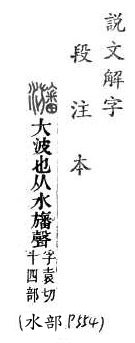 說文解字
段注本
大波也从水旛聲
孚袁切
十四部
(水部 P554)